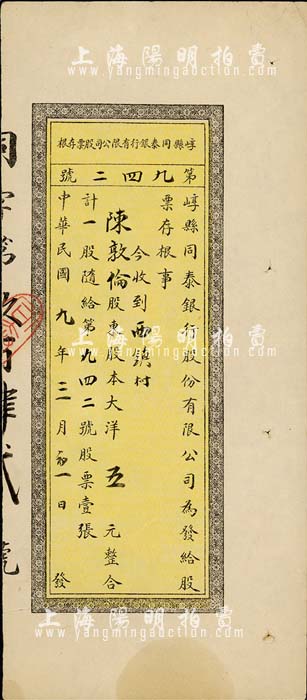 上海陽明拍賣
www.yangmingauction.com
崞縣同泰銀行有限公司股票存根
第九四二號
崞縣同泰銀行股份有限公司為發給股
票存根事
今收到西鎮村
陳敦倫股東股本大洋五元整合
計一股隨給第九四二號股票壹張
中華民國九年三月初一日發
同字第玖百肆拾貳號
上海陽明拍賣
www.yangmingauction.com